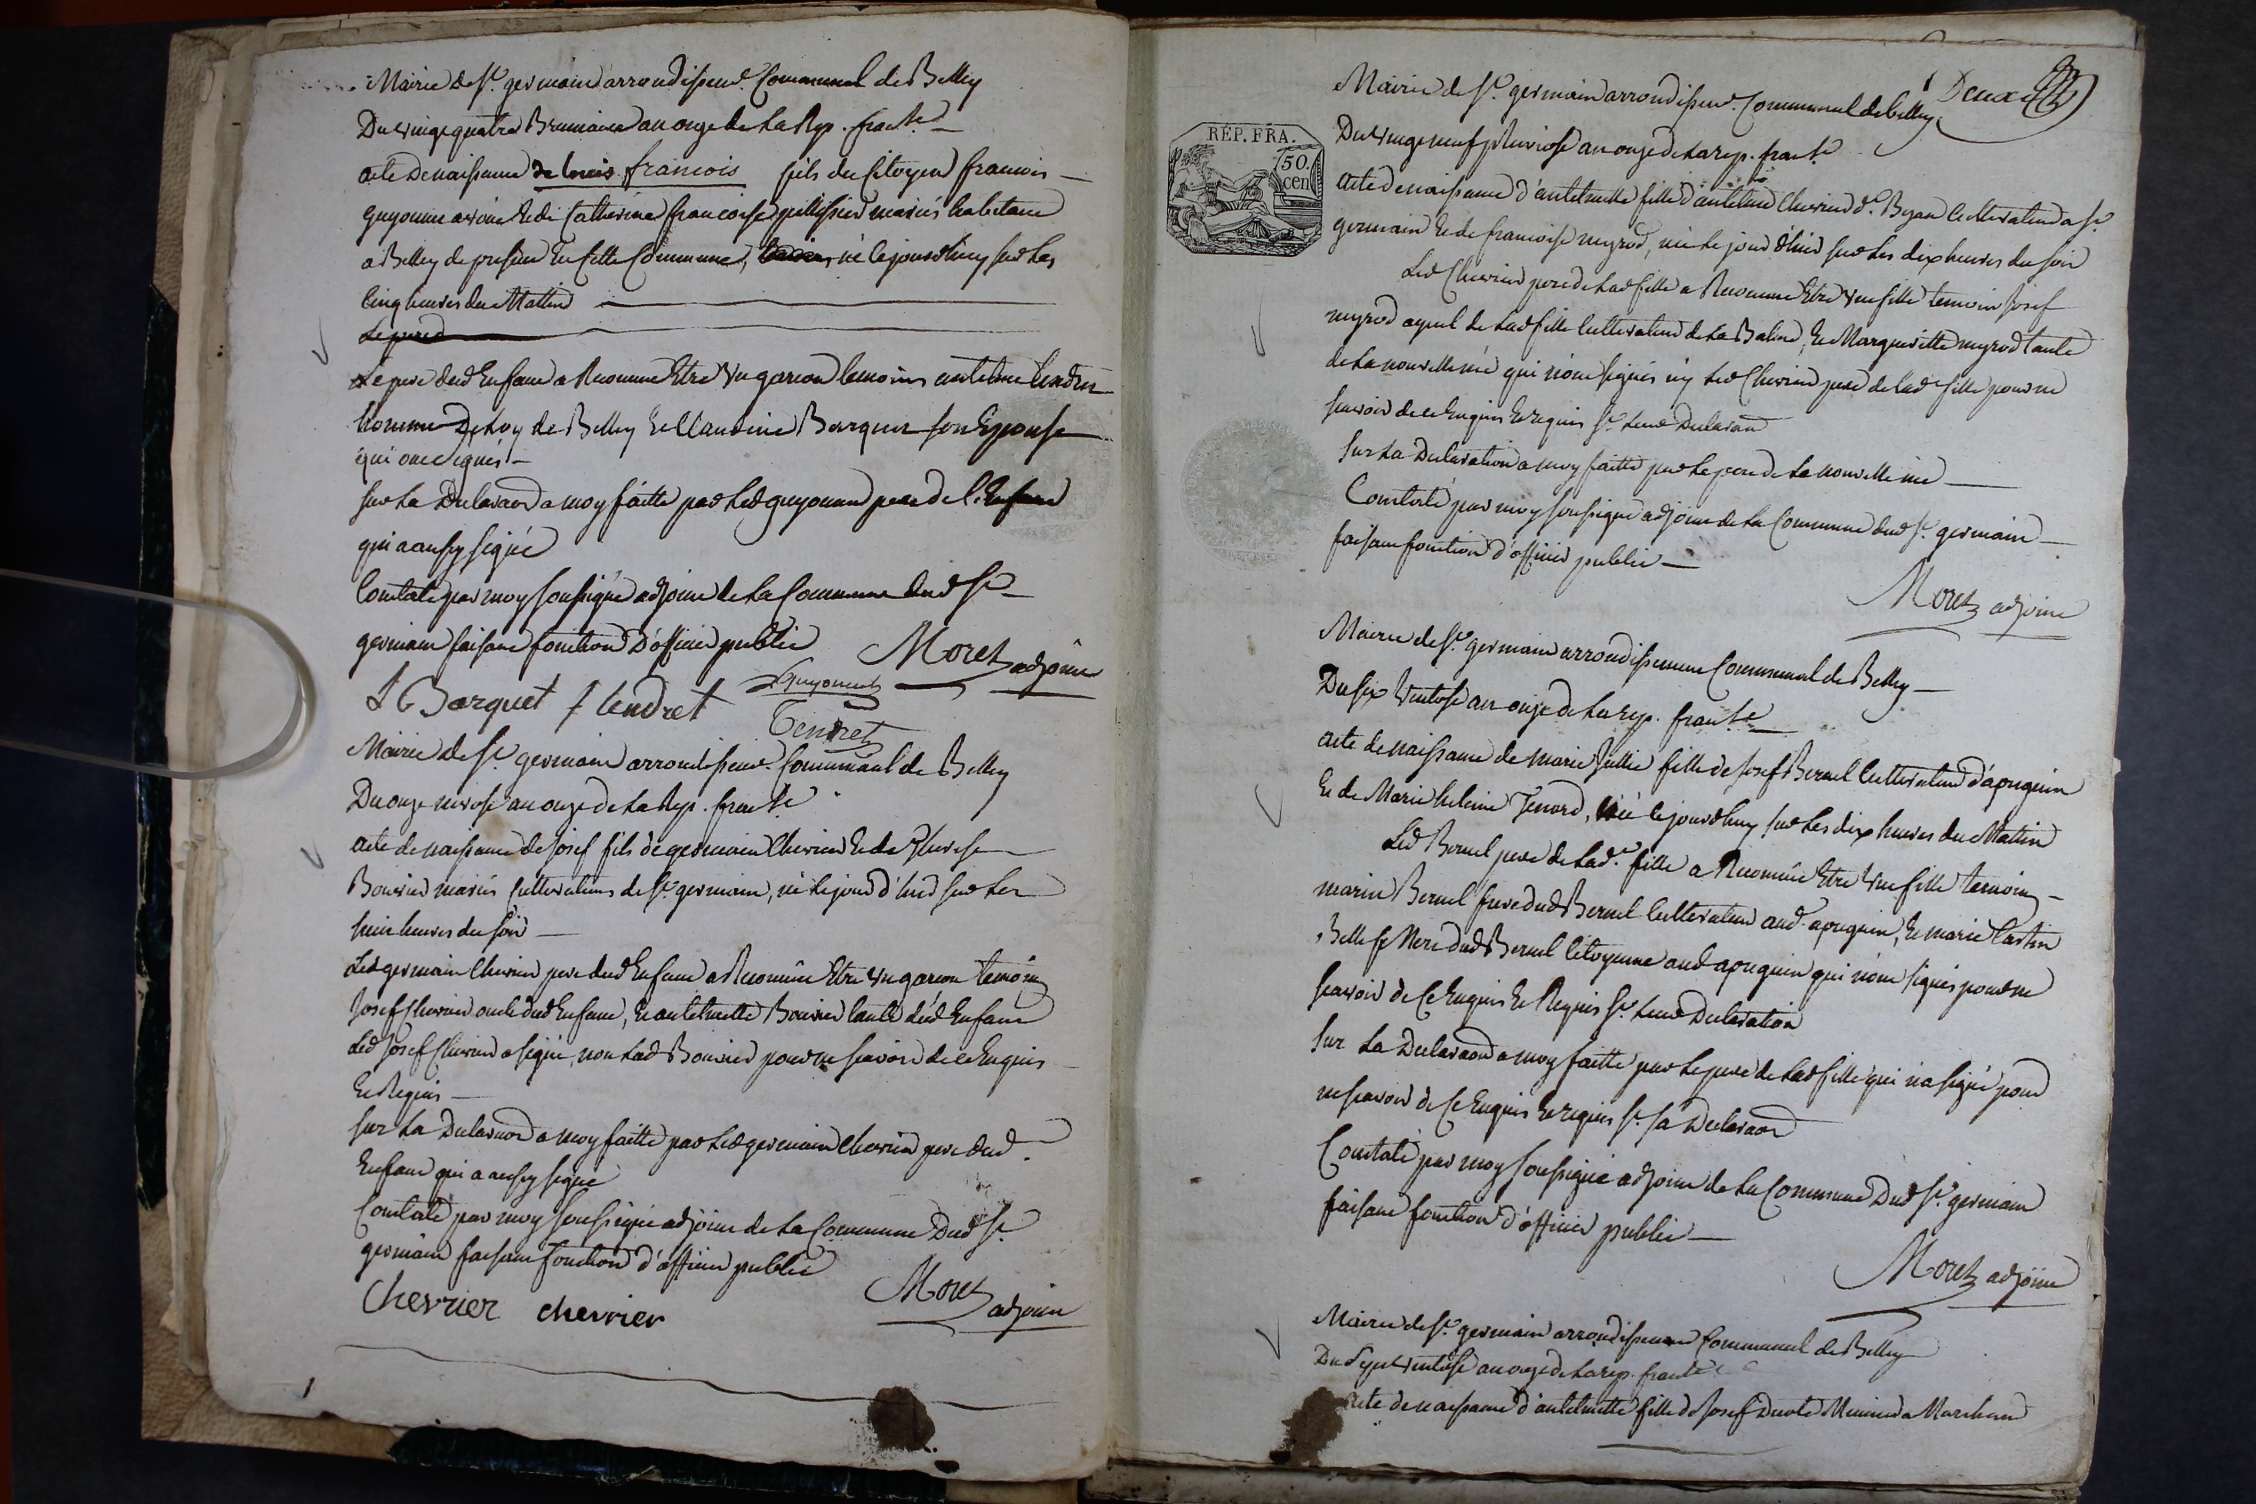 Mairie de St. germain arrondissemt. Communal de Belley
Du vingt quatre Brumaire an onze de La Rep. franse.
acte De naissance de louis francois fils du Citoyen francois
guyonnet avoué et de Catherine francoise pellissier mariés habitant
a Belley de present En Cette Commune, né Cejourdhuy sur Les
Cinq heures du Mattin
Le pere
Le pere dud Enfant a Reconnu Etre Un garcon temoins antelme tendret
homme De Loy de Belley Et Claudine Barquet son Epouse
qui ont signés
sur La Declaraon a moy faitte par Led guyonnet pere de l'Enfant
qui a aussy signé
Constaté par moy soussigné adjoint de La Commune dud St
germain faisant fonction D'officier public
Moret adjoint
Barquet f tendret
Guyonnet
Tendret
Mairie de St. germain arrondissemt. Communal de Belley
Du onze nivose an onze de La Rep. franse.
acte de naissance de Josef fils de germain Chevrier Et de Therese
Bouvier mariés Cultivateurs de St. germain, né Le jour d'hier sur Les
huit heures du soir
Led germain Chevrier pere dud Enfant a Reconnu Etre Un garcon temoins
Josef Chevrier oncle dud Enfant, Et antelmette Bouvier tante dud Enfant
Led Josef Chevrier a signé, non Lad Bouvier pour ne scavoir de ce Enquis
Et Requis
sur La Declaraon a moy faitte par Led germain Chevrier pere dud
Enfant qui a aussy signé
Constaté par moy soussigné adjoint de La Commune Dud St.
germain faisant fonction d'officier public
Moret adjoint
Chevrier chevrier
Deux
RÉP. FRA.
50. cen
Mairie de St. germain arrondissemt. Communal de belley
Du vingt neuf pluviose an onze de La rep. franse.
acte de naissance d'antelmette fille d'antelme Chevrier dt. Cultivateur a St.
germain Et de francoise myrod, née Le jour d'hier sur Les dix heures du soir
Led Chevrier pere de Lad fille a Reconnu Etre Une fille temoin Josef
myrod ayeul de Lad fille Cultivateur de La Balme, Et Marguerite myrod tante
de La nouvelle née qui n'ont signés ny Led Chevrier pere de Lad fille pour ne
scavoir de ce Enquis Et requis St. Leur Declaraon
sur La Declaration a moy faitte par Le pere de La nouvelle née
Constaté par moy soussigné adjoint de La Commune dud St. germain
faisant fonction d'officier public
Moret adjoint
Mairie de St. germain arrondissement Communal de Belley
Du six Ventose an onze de La rep. franse.
acte de naissance de marie Jullie fille de Josef Bernel Cultivateur d'apregnin
Et de Marie heleine Tenard, née Cejourdhuy sur Les dix heures du Mattin
Led Bernel pere de Lad. fille a Reconnu Etre Une fille temoins
marin Bernel frere dud Bernel Cultivateur aud apregnin, Et marie
Belle Mere dud Bernel Citoyenne aud apregnin qui n'ont signés pour ne
scavoir de Ce Enquis Et Requis St. Leur Declaration
sur La Declaraon a moy faitte par Le pere de Lad fille qui n'a signé pour
ne scavoir de Ce Enquis Et requis St. sa Declaraon
Constaté par moy soussigné adjoint de La Commune Dud St. germain
faisant fonction d'officier public
Moret adjoint
Mairie de St. germain arrondissement Communal de Belley
Du sept ventose an onze de La rep. franse
acte de naissance d'antelmette fille de Josef Marchand